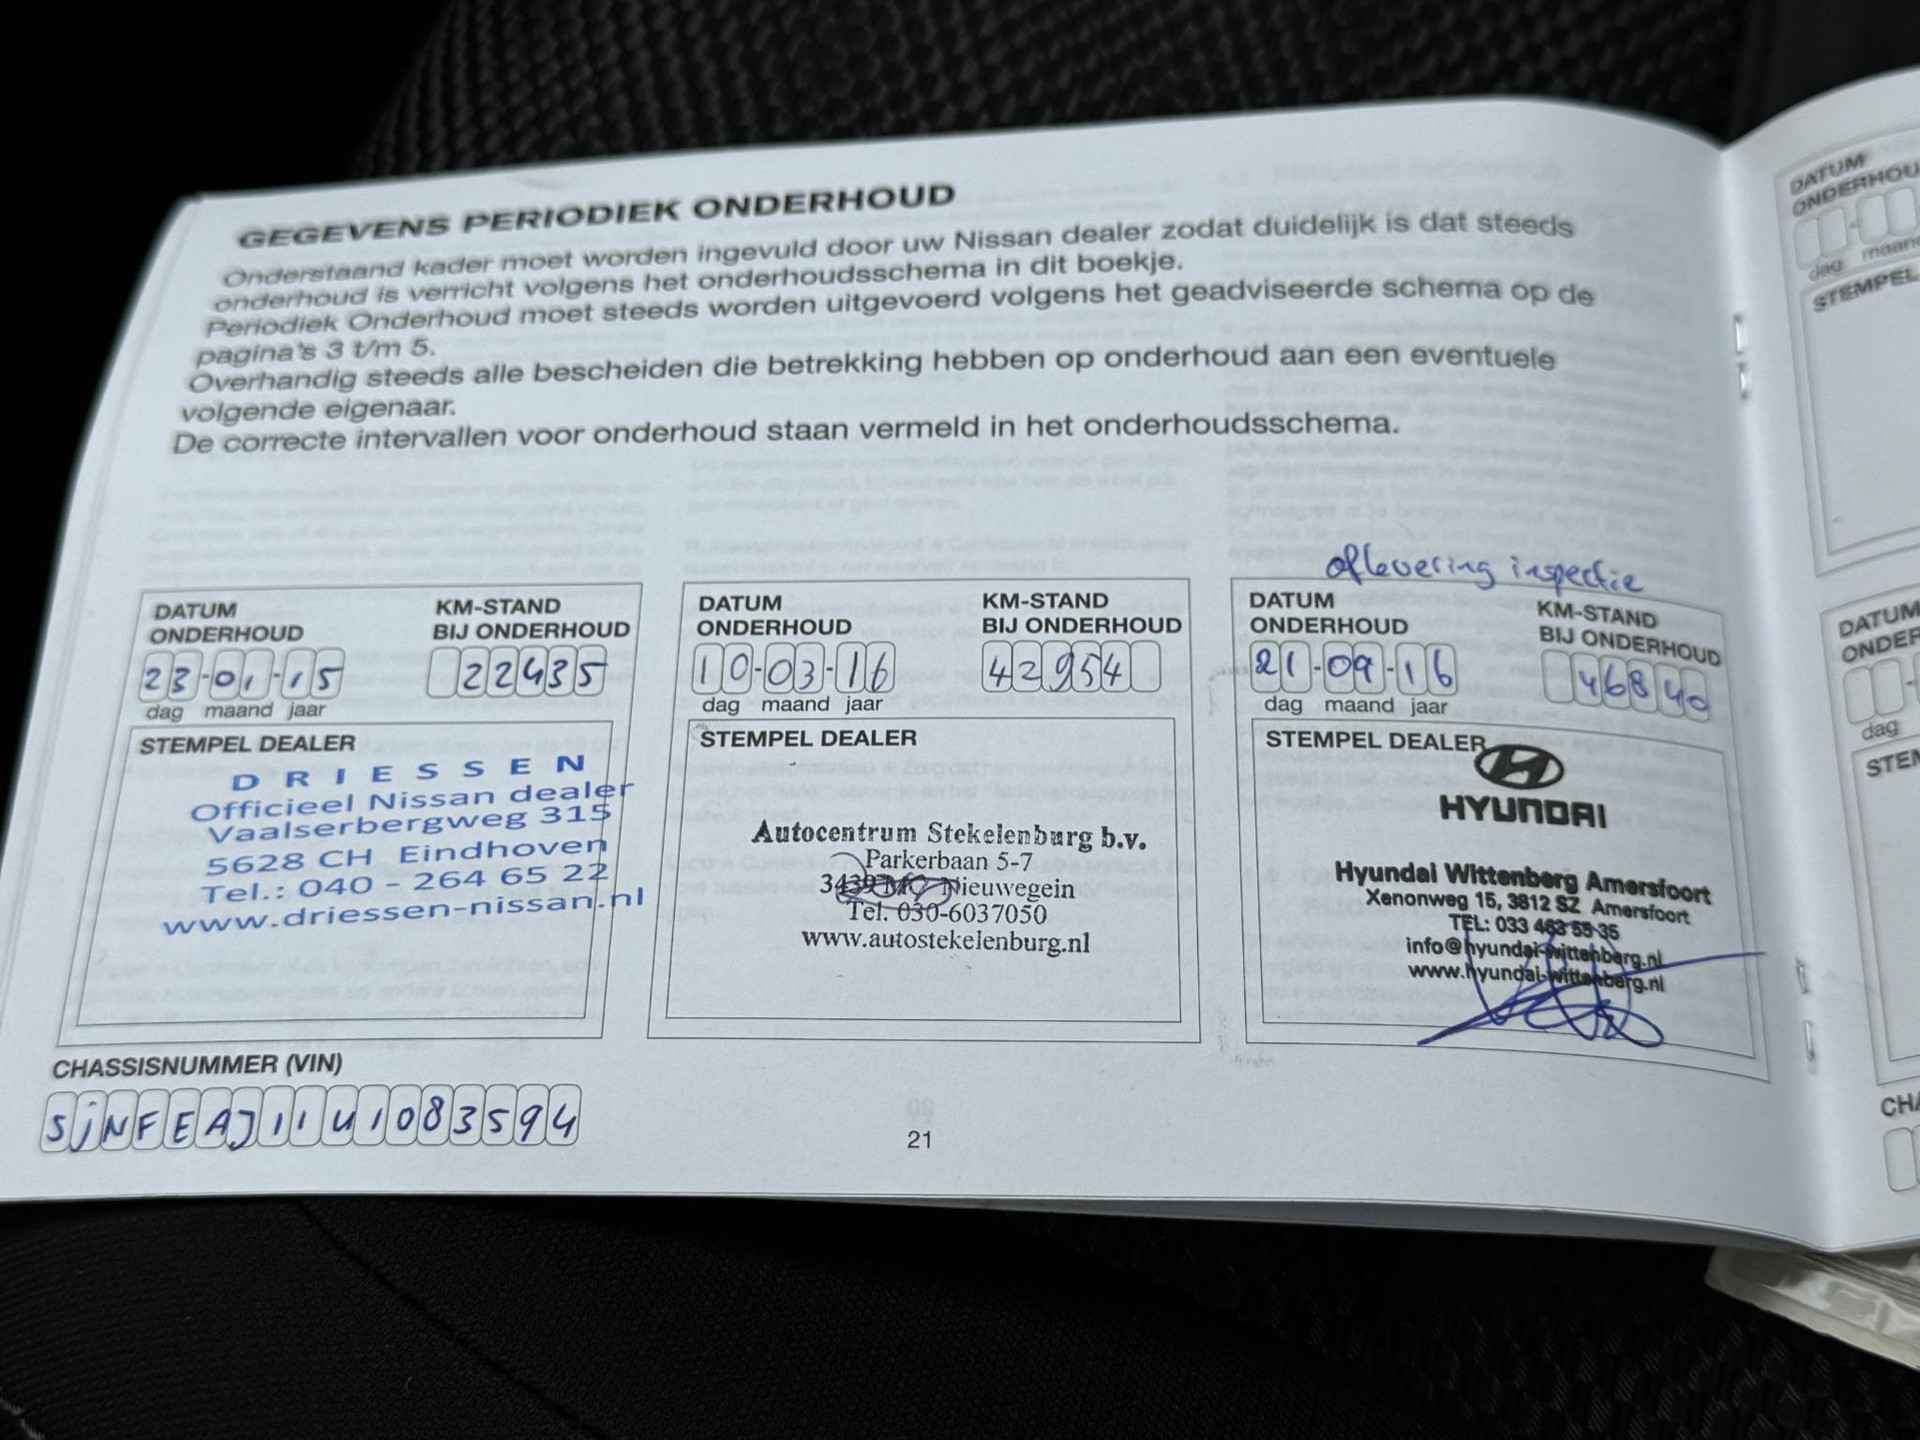 GEGEVENS PERIODIEK ONDERHOUD
Onderstaand kader moet worden ingevuld door uw Nissan dealer zodat duidelijk is dat steeds
onderhoud is verricht volgens het onderhoudsschema in dit boekje.
Periodiek Onderhoud moet steeds worden uitgevoerd volgens het geadviseerde schema op de
pagina's 3 t/m 5.
Overhandig steeds alle bescheiden die betrekking hebben op onderhoud aan een eventuele
volgende eigenaar.
De correcte intervallen voor onderhoud staan vermeld in het onderhoudsschema.
DATUM
ONDERHOUD
KM-STAND
BIJ ONDERHOUD
23-01-15
22435
dag maand jaar
STEMPEL DEALER
DRIESSEN
Officieel Nissan dealer
Vaalserbergweg 315
5628 CH Eindhoven
Tel.: 040 - 264 65 22
www.driessen-nissan.nl
DATUM
ONDERHOUD
KM-STAND
BIJ ONDERHOUD
10-03-16
42954
dag maand jaar
STEMPEL DEALER
Autocentrum Stekelenburg b.v.
Parkerbaan 5-7
3439 MC Nieuwegein
Tel. 030-6037050
www.autostekelenburg.nl
aflevering inspectie
DATUM
ONDERHOUD
KM-STAND
BIJ ONDERHOUD
21-09-16
46840
dag maand jaar
STEMPEL DEALER
HYUNDAI
Hyundai Wittenberg Amersfoort
Xenonweg 15, 3812 SZ Amersfoort
TEL: 033 463 55 35
info@hyundai-wittenberg.nl
www.hyundai-wittenberg.nl
CHASSISNUMMER (VIN)
SjNFEAJ11U1083594
21
DATUM
dag maand
STEMPEL
DATUM
dag